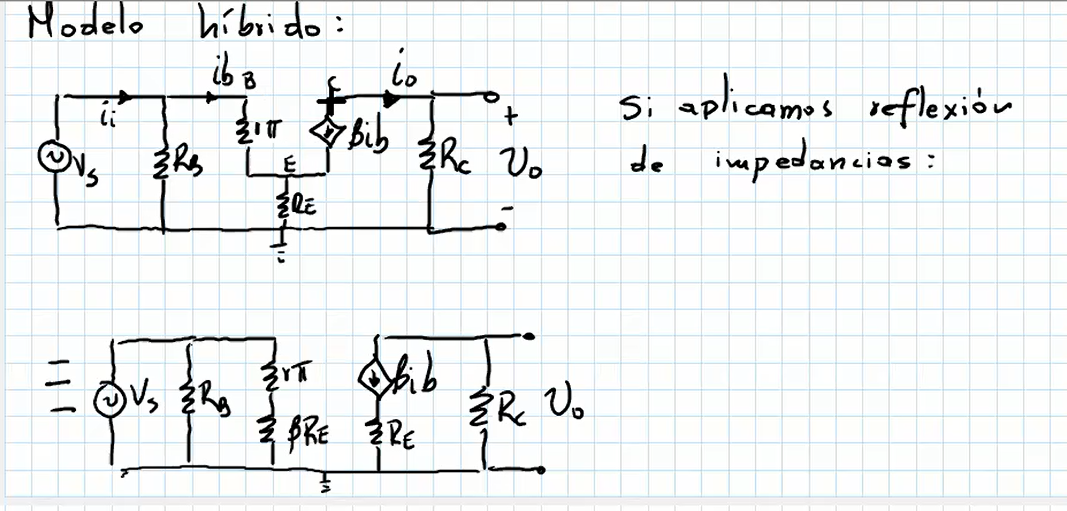 Modelo híbrido:
ii
ib
B
C
io
Vs
RB
rπ
βib
E
RE
RC
+
Vo
-
Si aplicamos reflexión
de impedancias:
=
Vs
RB
rπ
βRE
βib
RE
RC
Vo